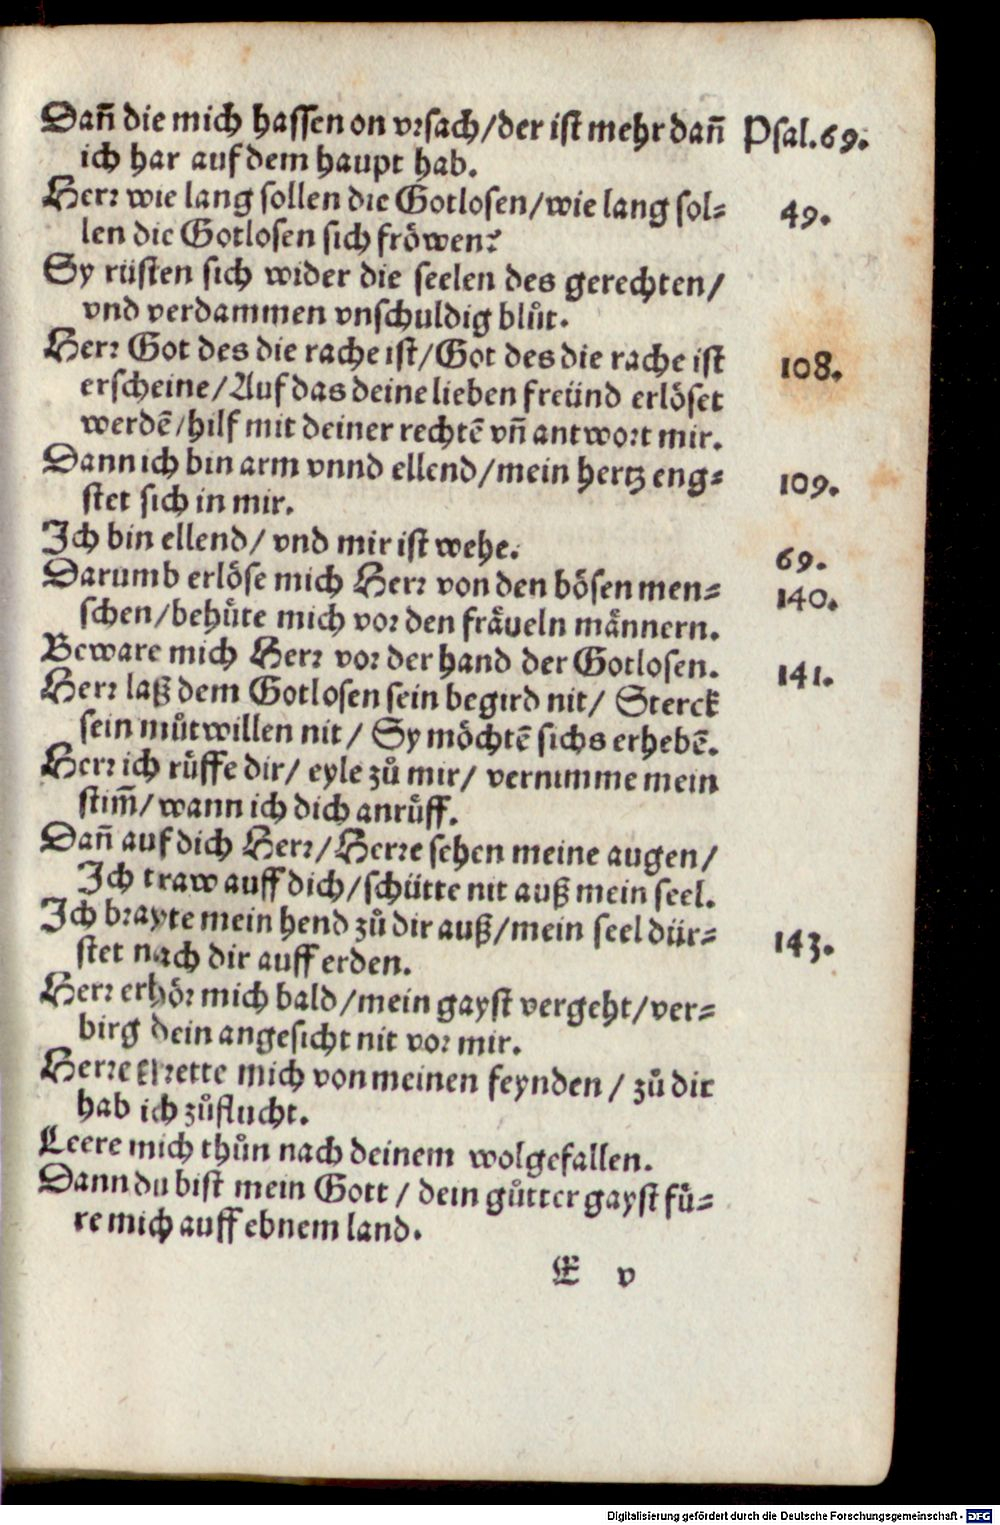 Dañ die mich hassen on vrsach/der ist mehr dañ Psal.69.
ich har auf dem haupt hab.
Herr wie lang sollen die Gotlosen/wie lang sol⸗ 49.
len die Gotlosen sich fröwen?
Sy rüsten sich wider die seelen des gerechten/
vnd verdammen vnschuldig blůt.
Herr Got des die rache ist/Got des die rache ist 108.
erscheine/Auf das deine lieben freünd erlöset
werdē/hilf mit deiner rechtē vñ antwort mir.
Dann ich bin arm vnnd ellend/mein hertz eng⸗ 109.
stet sich in mir.
Ich bin ellend/ vnd mir ist wehe. 69.
Darumb erlöse mich Herr von den bösen men⸗ 140.
schen/behüte mich vor den fräueln männern.
Beware mich Herr vor der hand der Gotlosen. 141.
Herr laß dem Gotlosen sein begird nit/ Sterck
sein můtwillen nit/ Sy möchtē sichs erhebē.
Herr ich rüffe dir/ eyle zů mir/ vernimme mein
stim̃/wann ich dich anrüff.
Dañ auf dich Herr/Herre sehen meine augen/
Ich traw auff dich/schütte nit auß mein seel.
Ich brayte mein hend zů dir auß/mein seel dür⸗ 143.
stet nach dir auff erden.
Herr erhör mich bald/mein gayst vergeht/ver⸗
birg dein angesicht nit vor mir.
Herre errette mich von meinen feynden / zů dir
hab ich zůflucht.
Leere mich thůn nach deinem wolgefallen.
Dann du bist mein Gott / dein gůtter gayst fü⸗
re mich auff ebnem land.
E v
Digitalisierung gefördert durch die Deutsche Forschungsgemeinschaft - DFG